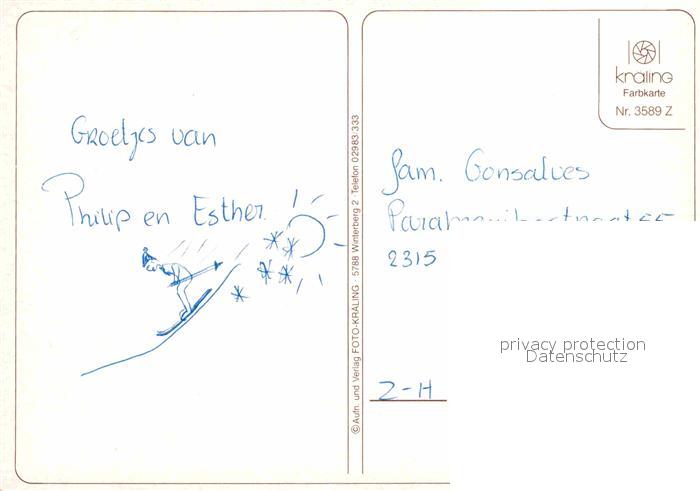 Groetjes van
Philip en Esther.
©Aufn. und Verlag FOTO-KRALING · 5788 Winterberg 2 · Telefon 02983 333
kraling
Farbkarte
Nr. 3589 Z
fam. Gonsalves
2315
privacy protection
Datenschutz
Z-H